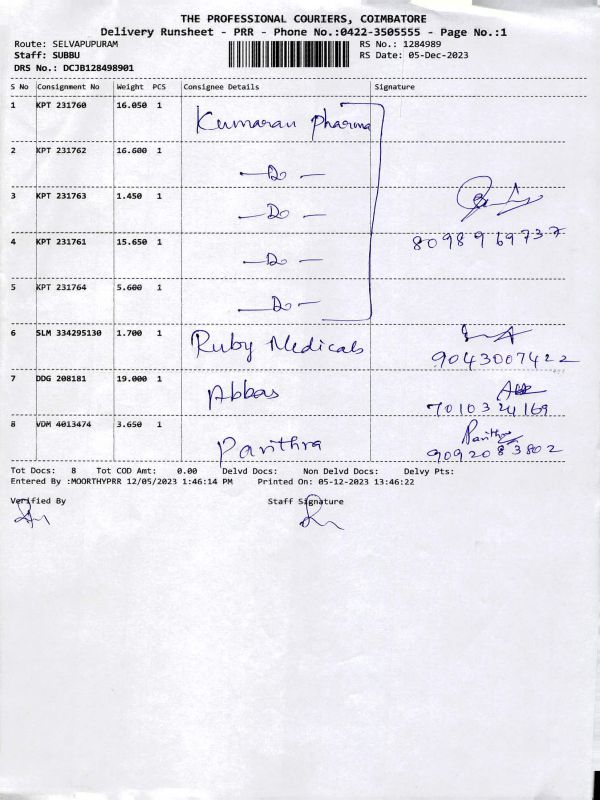 THE PROFESSIONAL COURIERS, COIMBATORE
Delivery Runsheet - PRR - Phone No.:0422-3505555 - Page No.:1
Route: SELVAPUPURAM RS No.: 1284989
Staff: SUBBU RS Date: 05-Dec-2023
DRS No.: DCJB128498901
S No Consignment No Weight PCS Consignee Details Signature
1 KPT 231760 16.050 1 Kumaran Pharma
2 KPT 231762 16.600 1 —Do—
3 KPT 231763 1.450 1 —Do—
8098969737
4 KPT 231761 15.650 1 —Do—
5 KPT 231764 5.600 1 —Do—
6 SLM 334295130 1.700 1 Ruby Medicals
9043007422
7 DDG 208181 19.000 1 Abbas
7010324169
8 VDM 4013474 3.650 1 Pavithra Pavithra
9092083802
Tot Docs: 8 Tot COD Amt: 0.00 Delvd Docs: Non Delvd Docs: Delvy Pts:
Entered By :MOORTHYPRR 12/05/2023 1:46:14 PM Printed On: 05-12-2023 13:46:22
Verified By Staff Signature